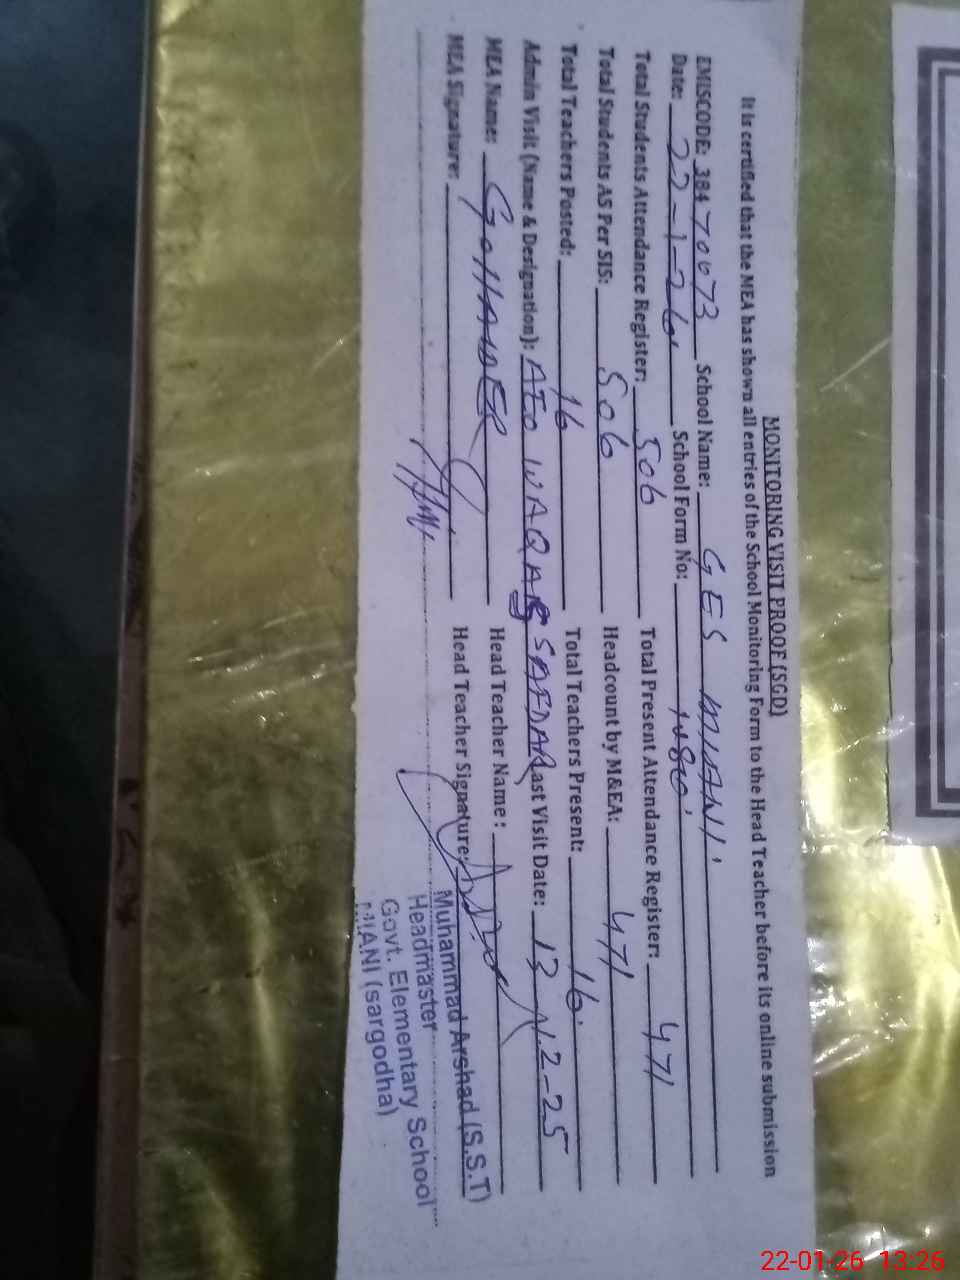 MONITORING VISIT PROOF (SGD)
It is certified that the MEA has shown all entries of the School Monitoring Form to the Head Teacher before its online submission
EMISCODE: 38470073 School Name: GES MIANI
Date: 22-1-26 School Form No:
Total Students Attendance Register: 506 Total Present Attendance Register: 471
Total Students AS Per SIS: 506 Headcount by M&EA: 471
Total Teachers Posted: 16 Total Teachers Present: 16
Admin Visit (Name & Designation): AEO WAQAR SAFDAR Last Visit Date: 13-12-25
MEA Name: Head Teacher Name:
MEA Signature: Head Teacher Signature:
Muhammad Arshad (S.S.T)
Headmaster
Govt. Elementary School
MIANI (sargodha)
22-01-26 13:26